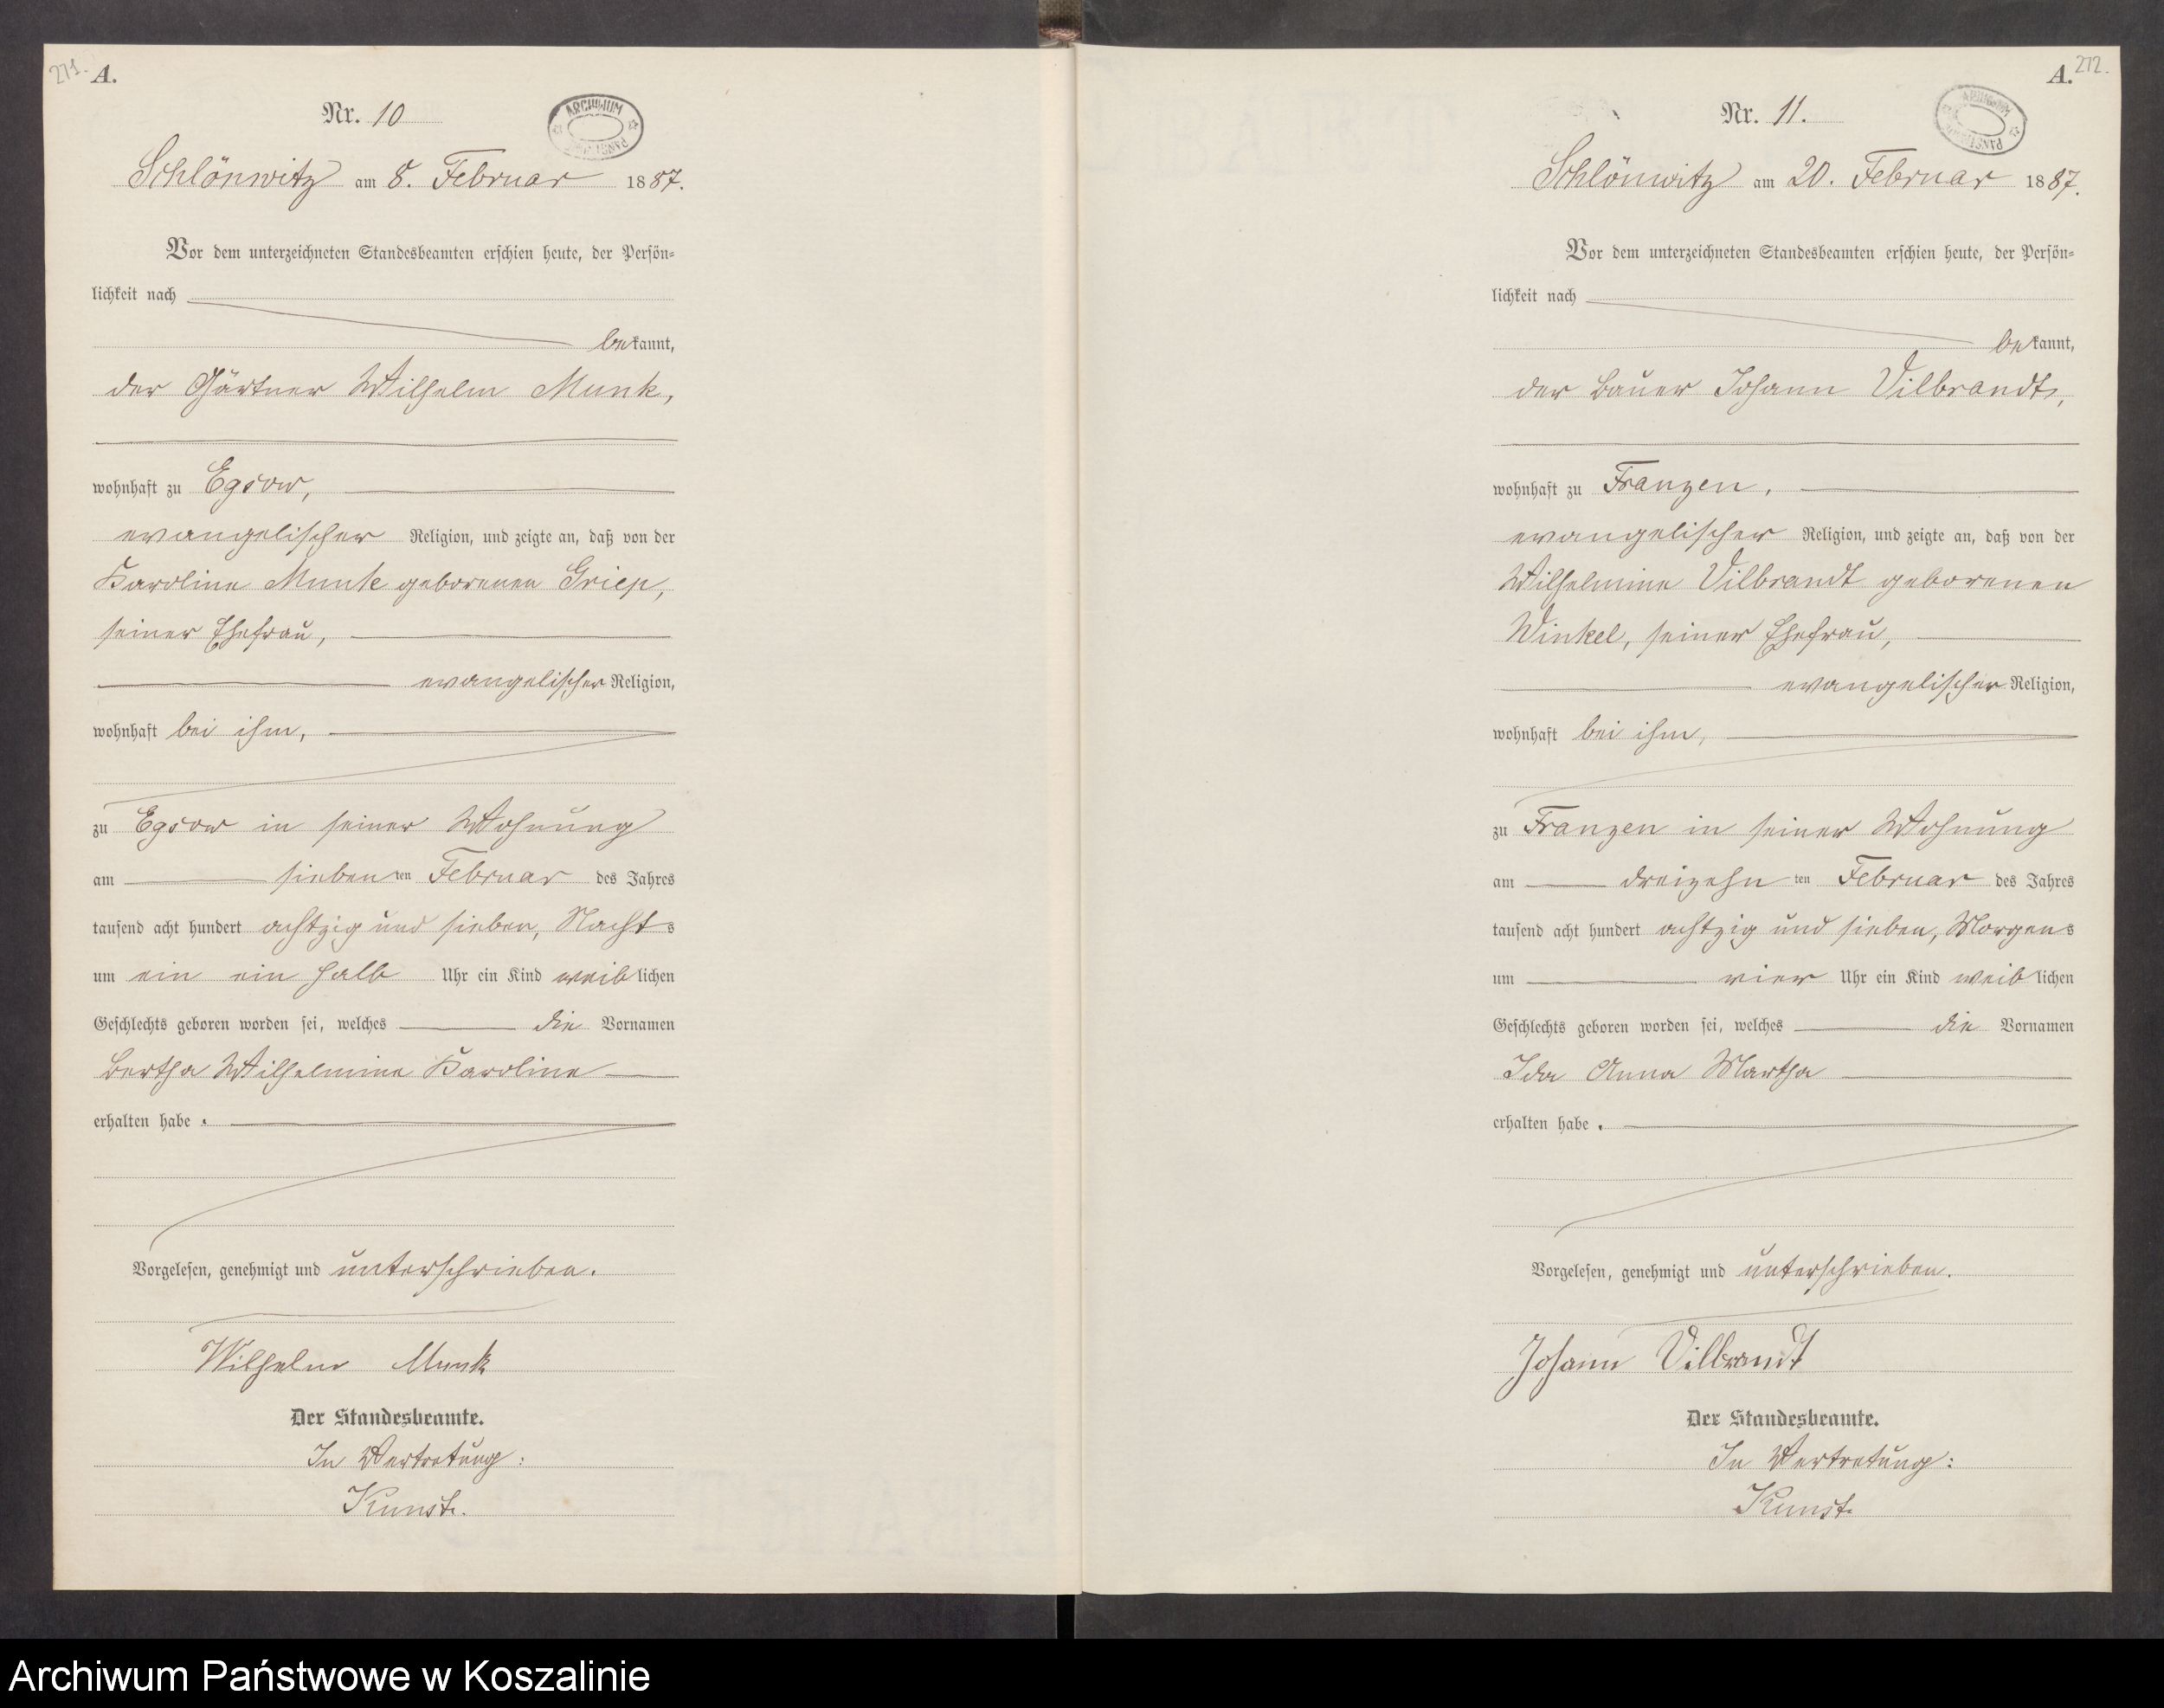 271.
A.
Nr. 10
ARCHIWUM
Schlönwitz am 8. Februar 1887.
Vor dem unterzeichneten Standesbeamten erschien heute, der Persön-
lichkeit nach
bekannt,
der Gärtner Wilhelm Munk,
wohnhaft zu Egsow,
evangelischer Religion, und zeigte an, daß von der
Karoline Munk geborenen Griep,
seiner Ehefrau,
evangelischer Religion,
wohnhaft bei ihm,
zu Egsow in seiner Wohnung
am siebenten Februar des Jahres
tausend acht hundert achtzig und sieben, Nachts
um ein ein halb Uhr ein Kind weiblichen
Geschlechts geboren worden sei, welches die Vornamen
Bertha Wilhelmine Karoline
erhalten habe.
Vorgelesen, genehmigt und unterschrieben.
Wilhelm Munk
Der Standesbeamte.
In Vertretung:
Kunst.
A. 272.
Nr. 11.
ARCHIWUM
Schlönwitz am 20. Februar 1887.
Vor dem unterzeichneten Standesbeamten erschien heute, der Persön-
lichkeit nach
bekannt,
der Bauer Johann Vilbrandt,
wohnhaft zu Franzen,
evangelischer Religion, und zeigte an, daß von der
Wilhelmine Vilbrandt geborenen
Winkel, seiner Ehefrau,
evangelischer Religion,
wohnhaft bei ihm,
zu Franzen in seiner Wohnung
am dreizehnten Februar des Jahres
tausend acht hundert achtzig und sieben, Morgens
um vier Uhr ein Kind weiblichen
Geschlechts geboren worden sei, welches die Vornamen
Ida Anna Martha
erhalten habe.
Vorgelesen, genehmigt und unterschrieben.
Johann Vilbrandt
Der Standesbeamte.
In Vertretung:
Kunst.
Archiwum Państwowe w Koszalinie